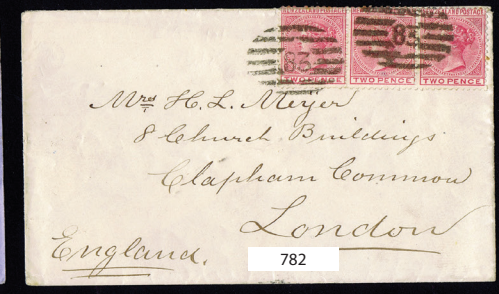 TWO PENCE TWO PENCE TWO PENCE
83 83
Mrs H. L. Meyer
8 Church Buildings
Clapham Common
London
England.
782